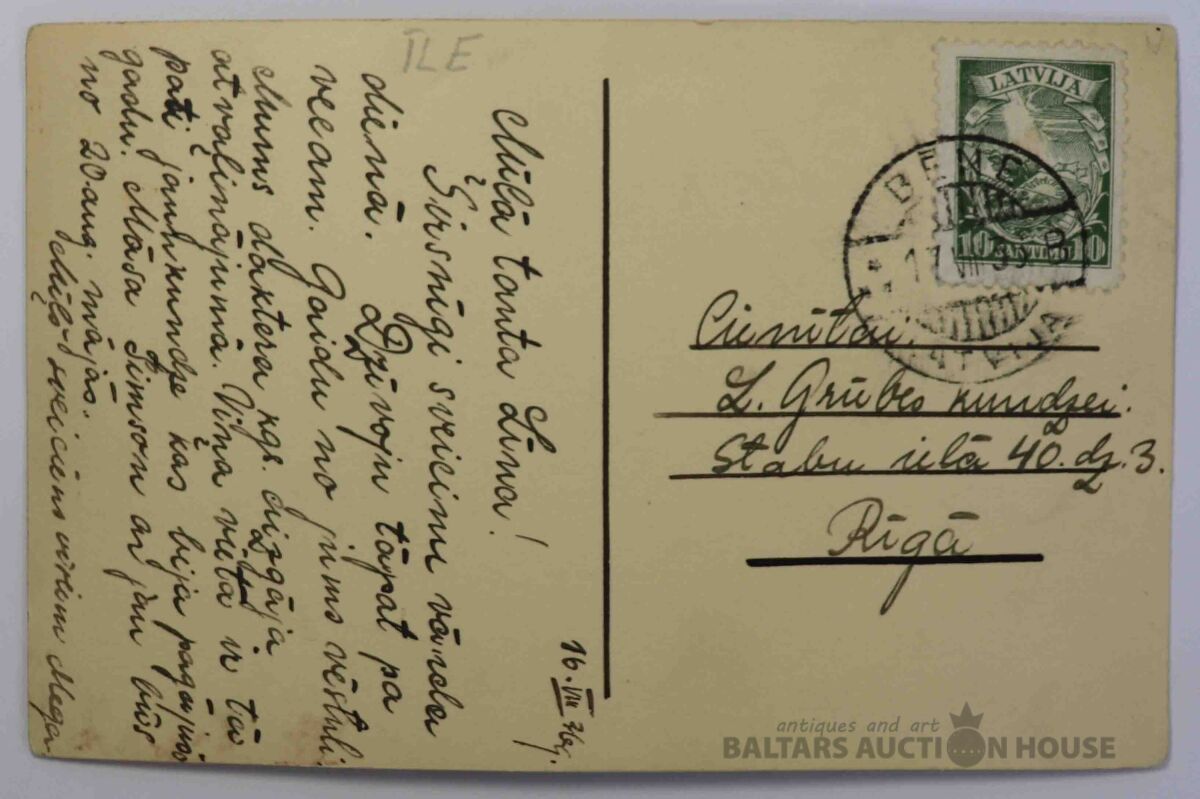 ĪLE
Mīļā tanta Līna!
Sirsnīgi sveicinu vārda
dienā. Dzīvoju tāpat pa
vecam. Gaidu no jums vēstuli.
Mums daktera kgs. aizgāja
atvaļinājumā. Viņa vietā ir tā
pati jaunkundze kas bija pagājušo
gadu. Māsa Simson ar jau būs
no 20 aug. mājās.
Mīļos sveiciens visiem
16. VIII 36g.
LATVIJA
10 SANTIMU 10
BĒNE
17 VIII 36
LATVIJA
Cienītai
L. Grūbes kundzei.
Stabu ielā 40. dz. 3.
Rīgā
antiques and art
BALTARS AUCTION HOUSE